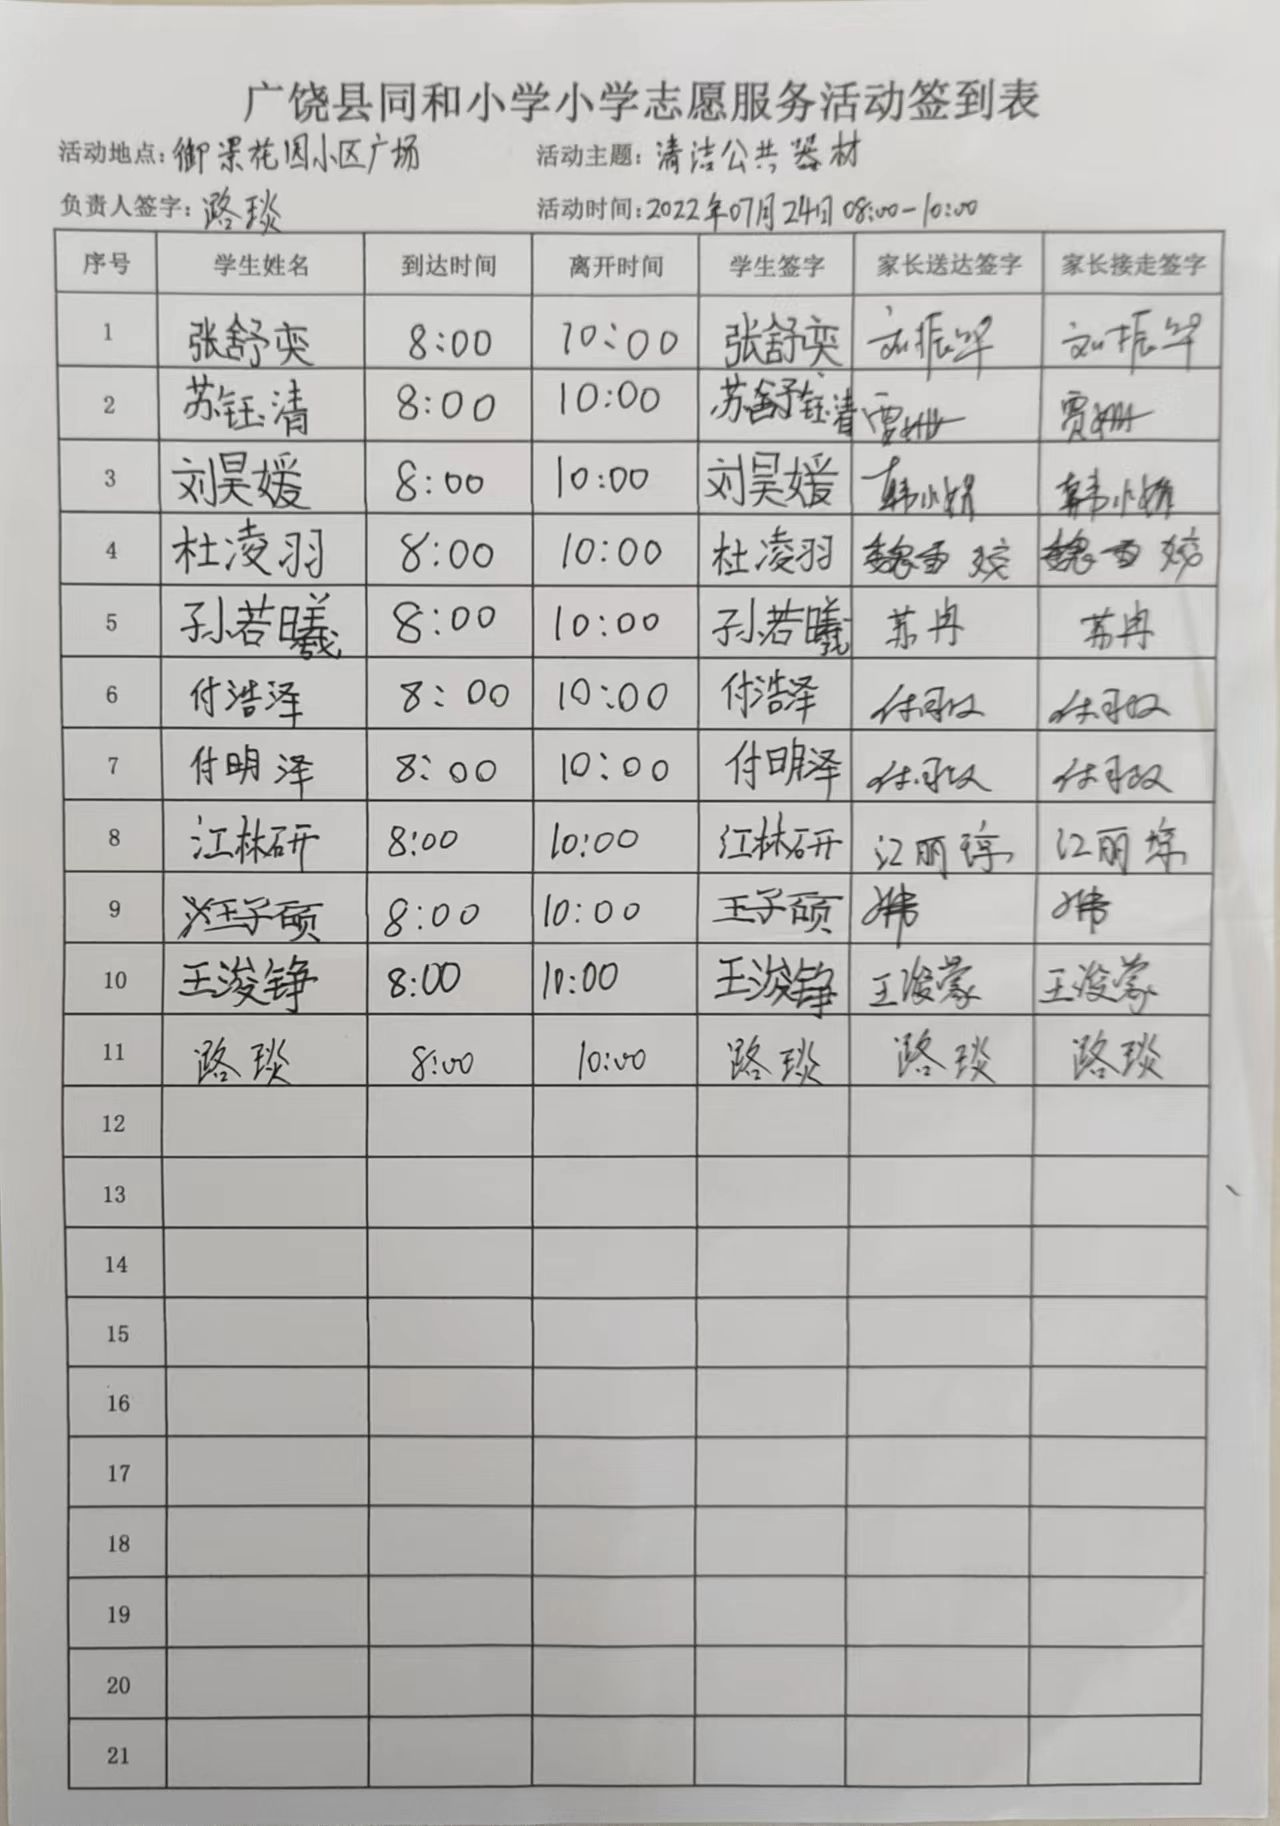 广饶县同和小学小学志愿服务活动签到表
活动地点: 御景花园小区广场 活动主题: 清洁公共器材
负责人签字: 路琰 活动时间: 2022年07月24日 08:00-10:00
序号 学生姓名 到达时间 离开时间 学生签字 家长送达签字 家长接走签字
1 张舒奕 8:00 10:00 张舒奕 刘振华 刘振华
2 苏钰清 8:00 10:00 苏钰清 贾姗 贾姗
3 刘昊媛 8:00 10:00 刘昊媛 韩小娟 韩小娟
4 杜凌羽 8:00 10:00 杜凌羽 魏雪 魏雪
5 孙若曦 8:00 10:00 孙若曦 苏冉 苏冉
6 付浩泽 8:00 10:00 付浩泽
7 付明泽 8:00 10:00 付明泽
8 江林研 8:00 10:00 江林研 江丽 江丽
9 王子硕 8:00 10:00 王子硕
10 王浚铮 8:00 10:00 王浚铮 王俊蒙 王俊蒙
11 路琰 8:00 10:00 路琰 路琰 路琰
12
13
14
15
16
17
18
19
20
21